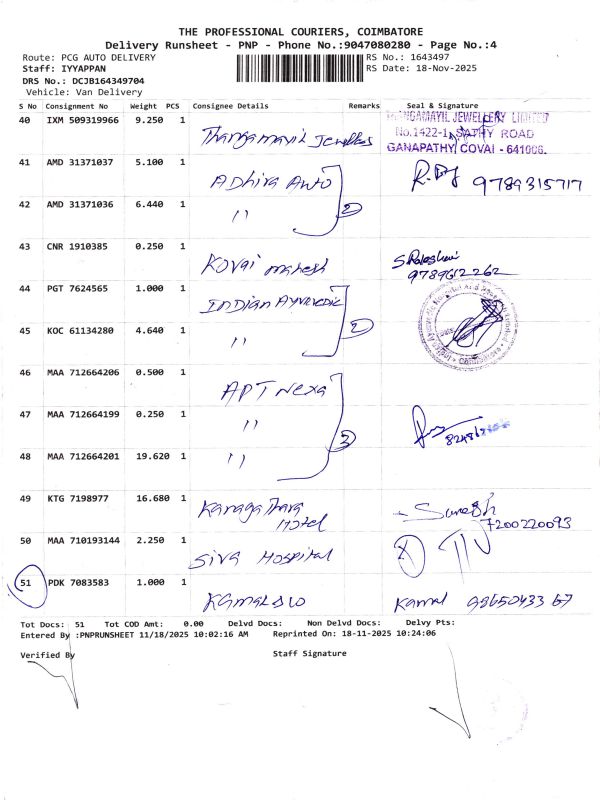 THE PROFESSIONAL COURIERS, COIMBATORE
Delivery Runsheet - PNP - Phone No.:9047080280 - Page No.:4
Route: PCG AUTO DELIVERY RS No.: 1643497
Staff: IYYAPPAN RS Date: 18-Nov-2025
DRS No.: DCJB164349704
Vehicle: Van Delivery
S No Consignment No Weight PCS Consignee Details Remarks Seal & Signature
40 IXM 509319966 9.250 1 Thangamayil Jewellers THANGAMAYIL JEWELLERY LIMITED
No.1422-1, SATHY ROAD
GANAPATHY, COVAI - 641006.
41 AMD 31371037 5.100 1 Adhira Auto 9789315717
42 AMD 31371036 6.440 1 " 2
43 CNR 1910385 0.250 1 Kovai mahesh
9789612262
44 PGT 7624565 1.000 1 Indian Ayurvedic
45 KOC 61134280 4.640 1 " 2
46 MAA 712664206 0.500 1 APT Nexa
47 MAA 712664199 0.250 1 "
48 MAA 712664201 19.620 1 " 3
49 KTG 7198977 16.680 1 Kanaga Thara Hotel Suresh
7200220093
50 MAA 710193144 2.250 1 Siva Hospital
51 PDK 7083583 1.000 1 Kamal Kamal
Tot Docs: 51 Tot COD Amt: 0.00 Delvd Docs: Non Delvd Docs: Delvy Pts:
Entered By :PNPRUNSHEET 11/18/2025 10:02:16 AM Reprinted On: 18-11-2025 10:24:06
Verified By Staff Signature